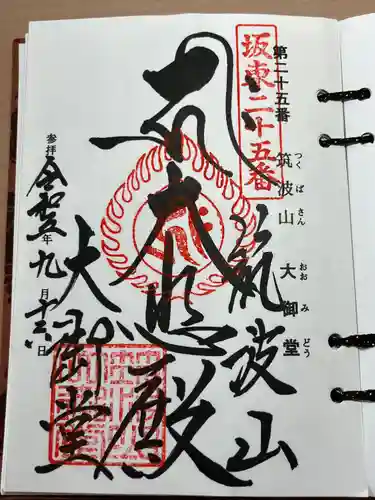 坂東二十五番
第二十五番
筑波山 大御堂
つくばさん おおみどう
奉
大悲殿
筑波山
大御堂
参拝
令和五年九月十二日